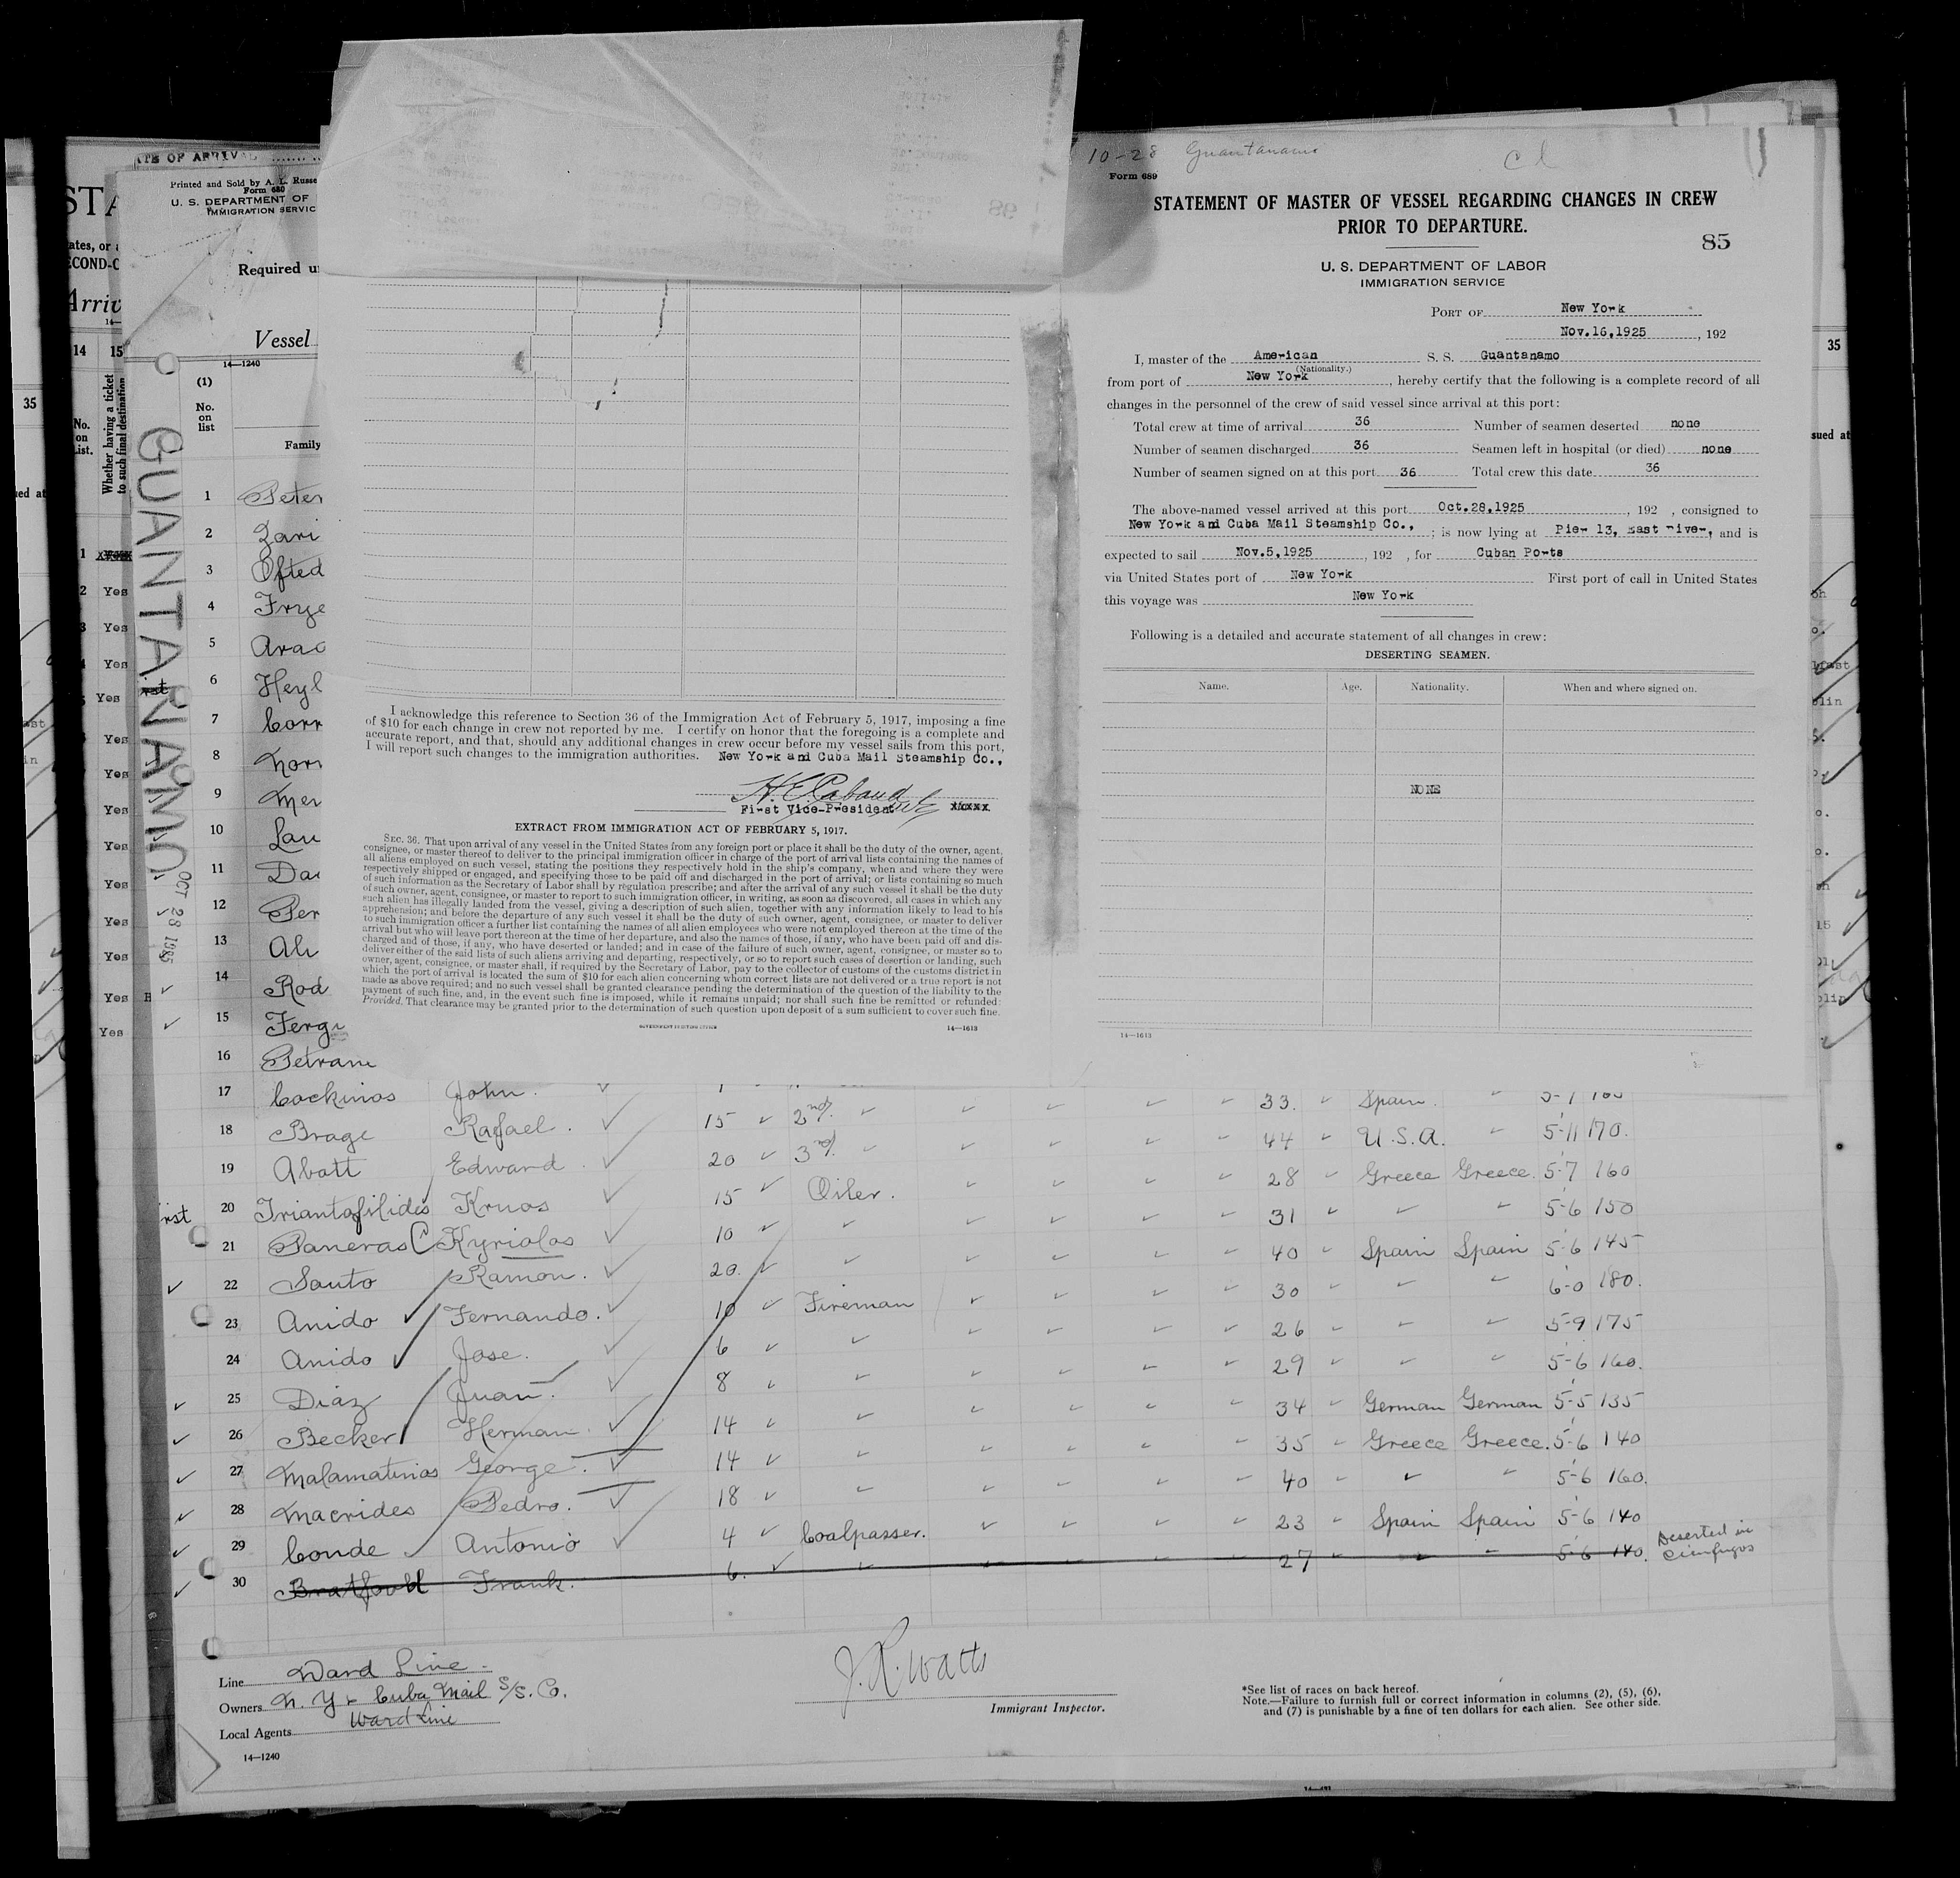 10-28 Guantanamo
Form 689
STATEMENT OF MASTER OF VESSEL REGARDING CHANGES IN CREW
PRIOR TO DEPARTURE.
85
U. S. DEPARTMENT OF LABOR
IMMIGRATION SERVICE
PORT OF New York
Nov.16,1925, 192
I, master of the American S. S. Guantanamo
(Nationality.)
from port of New York, hereby certify that the following is a complete record of all
changes in the personnel of the crew of said vessel since arrival at this port:
Total crew at time of arrival 36 Number of seamen deserted none
Number of seamen discharged 36 Seamen left in hospital (or died) none
Number of seamen signed on at this port 36 Total crew this date 36
The above-named vessel arrived at this port Oct.28,1925, 192 , consigned to
New York and Cuba Mail Steamship Co., ; is now lying at Pier 13, East River, and is
expected to sail Nov.5,1925, 192 , for Cuban Ports
via United States port of New York First port of call in United States
this voyage was New York
Following is a detailed and accurate statement of all changes in crew:
DESERTING SEAMEN.
Name. Age. Nationality. When and where signed on.
NONE
14—1613
I acknowledge this reference to Section 36 of the Immigration Act of February 5, 1917, imposing a fine
of $10 for each change in crew not reported by me. I certify on honor that the foregoing is a complete and
accurate report, and that, should any additional changes in crew occur before my vessel sails from this port,
I will report such changes to the immigration authorities. New York and Cuba Mail Steamship Co.,
First Vice-President xxxxx
EXTRACT FROM IMMIGRATION ACT OF FEBRUARY 5, 1917.
SEC. 36. That upon arrival of any vessel in the United States from any foreign port or place it shall be the duty of the owner, agent,
consignee, or master thereof to deliver to the principal immigration officer in charge of the port of arrival lists containing the names of
all aliens employed on such vessel, stating the positions they respectively hold in the ship's company, when and where they were
respectively shipped or engaged, and specifying those to be paid off and discharged in the port of arrival; or lists containing so much
of such information as the Secretary of Labor shall by regulation prescribe; and after the arrival of any such vessel it shall be the duty
of such owner, agent, consignee, or master to report to such immigration officer, in writing, as soon as discovered, all cases in which any
such alien has illegally landed from the vessel, giving a description of such alien, together with any information likely to lead to his
apprehension; and before the departure of any such vessel it shall be the duty of such owner, agent, consignee, or master to deliver
to such immigration officer a further list containing the names of all alien employees who were not employed thereon at the time of the
arrival but who will leave port thereon at the time of her departure, and also the names of those, if any, who have been paid off and dis-
charged and of those, if any, who have deserted or landed; and in case of the failure of such owner, agent, consignee, or master so to
deliver either of the said lists of such aliens arriving and departing, respectively, or so to report such cases of desertion or landing, such
owner, agent, consignee, or master shall, if required by the Secretary of Labor, pay to the collector of customs of the customs district in
which the port of arrival is located the sum of $10 for each alien concerning whom correct lists are not delivered or a true report is not
made as above required; and no such vessel shall be granted clearance pending the determination of the question of the liability to the
payment of such fine, and, in the event such fine is imposed, while it remains unpaid; nor shall such fine be remitted or refunded:
Provided, That clearance may be granted prior to the determination of such question upon deposit of a sum sufficient to cover such fine.
GOVERNMENT PRINTING OFFICE 14—1613
Printed and Sold by A. L. Russe
Form 680
U. S. DEPARTMENT OF
IMMIGRATION SERVIC
Required u
Vessel
14—1240
(1)
No.
on
list
Family
GUANTANAMO
OCT 28 1925
1 Peter
2 Zari
3 Ofted
4 Frye
5 Arao
6 Heyl
7 Corr
8 Nor
9 Mer
10 Lau
11 Da
12 Per
13 Al
14 Rod
15 Ferg
16 Petram
17 Cockinos John.
18 Brage Rafael. 15 2nd. 33. Spain.
19 Abatt Edward 20 3rd. 44 U.S.A. 5-11 170.
20 Triantafilides Kruos 15 Oiler. 28 Greece Greece. 5-7 160
21 Paneras C Kyriolos 10 31 5-6 150
22 Souto Ramon. 20. 40 Spain Spain 5-6 145
23 Anido Fernando. 10 Fireman 30 6-0 180.
24 Anido Jose. 6 26 5-9 175
25 Diaz Juan. 8 29 5-6 160.
26 Becker Herman. 14 34 German German 5-5 135
27 Malamatinios George 14 35 Greece Greece. 5-6 140
28 Macrides Pedro. 18 40 5-6 160.
29 Conde Antonio 4 Coalpasser. 23 Spain Spain 5-6 140
30 Frank. 6. 27 5-6 140. Deserted in
Cienfugos
Line Ward Line
Owners N. Y & Cuba Mail S/S. Co.
Local Agents Ward Line
14—1240
J. R. Watts
Immigrant Inspector.
*See list of races on back hereof.
Note.—Failure to furnish full or correct information in columns (2), (5), (6),
and (7) is punishable by a fine of ten dollars for each alien. See other side.